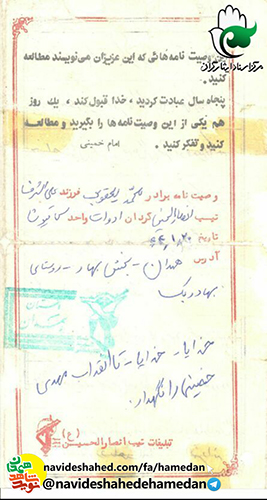 مرکز اسناد ایثارگران
وصیت نامه هائی که این عزیزان می‌نویسند مطالعه
کنید.
پنجاه سال عبادت کردید، خدا قبول کند، یک روز
هم یکی از این وصیت نامه ها را بگیرید و مطالعه
کنید و تفکر کنید.
امام خمینی
وصیت نامه برادر محمد یعقوبی فرزند
تیپ انصارالحسین گردان ادوات واحد
تاریخ
آدرس همدان - بخش بهار - روستای
بهادربیک
خدایا - خدایا - تا انقلاب مهدی
خمینی را نگهدار.
تبلیغات تیپ انصارالحسین (ع)
navideshahed.com/fa/hamedan
@navideshahedehamedan